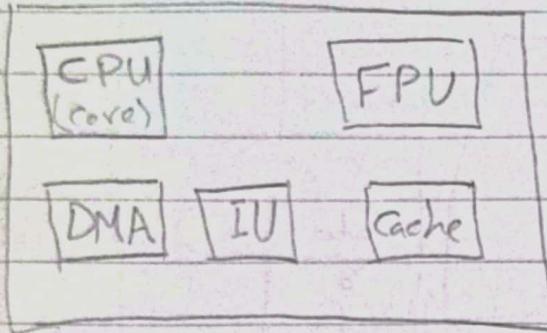 CPU
(core)
FPU
DMA
IU
Cache